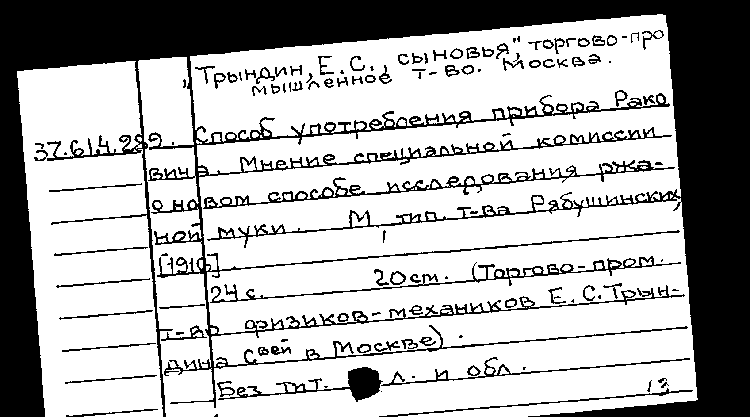 „Трындин, Е. С., сыновья", торгово-про
мышленное т-во. Москва.
37.61.4.289. Способ употребления прибора Рако
вича. Мнение специальной комиссии
о новом способе исследования ржа-
ной муки. М, тип. т-ва Рябушинских,
[1916].
24 с. 20 см. (Торгово-пром.
т-во физиков-механиков Е. С. Трын-
дина С вей в Москве).
Без тит. л. и обл.
13